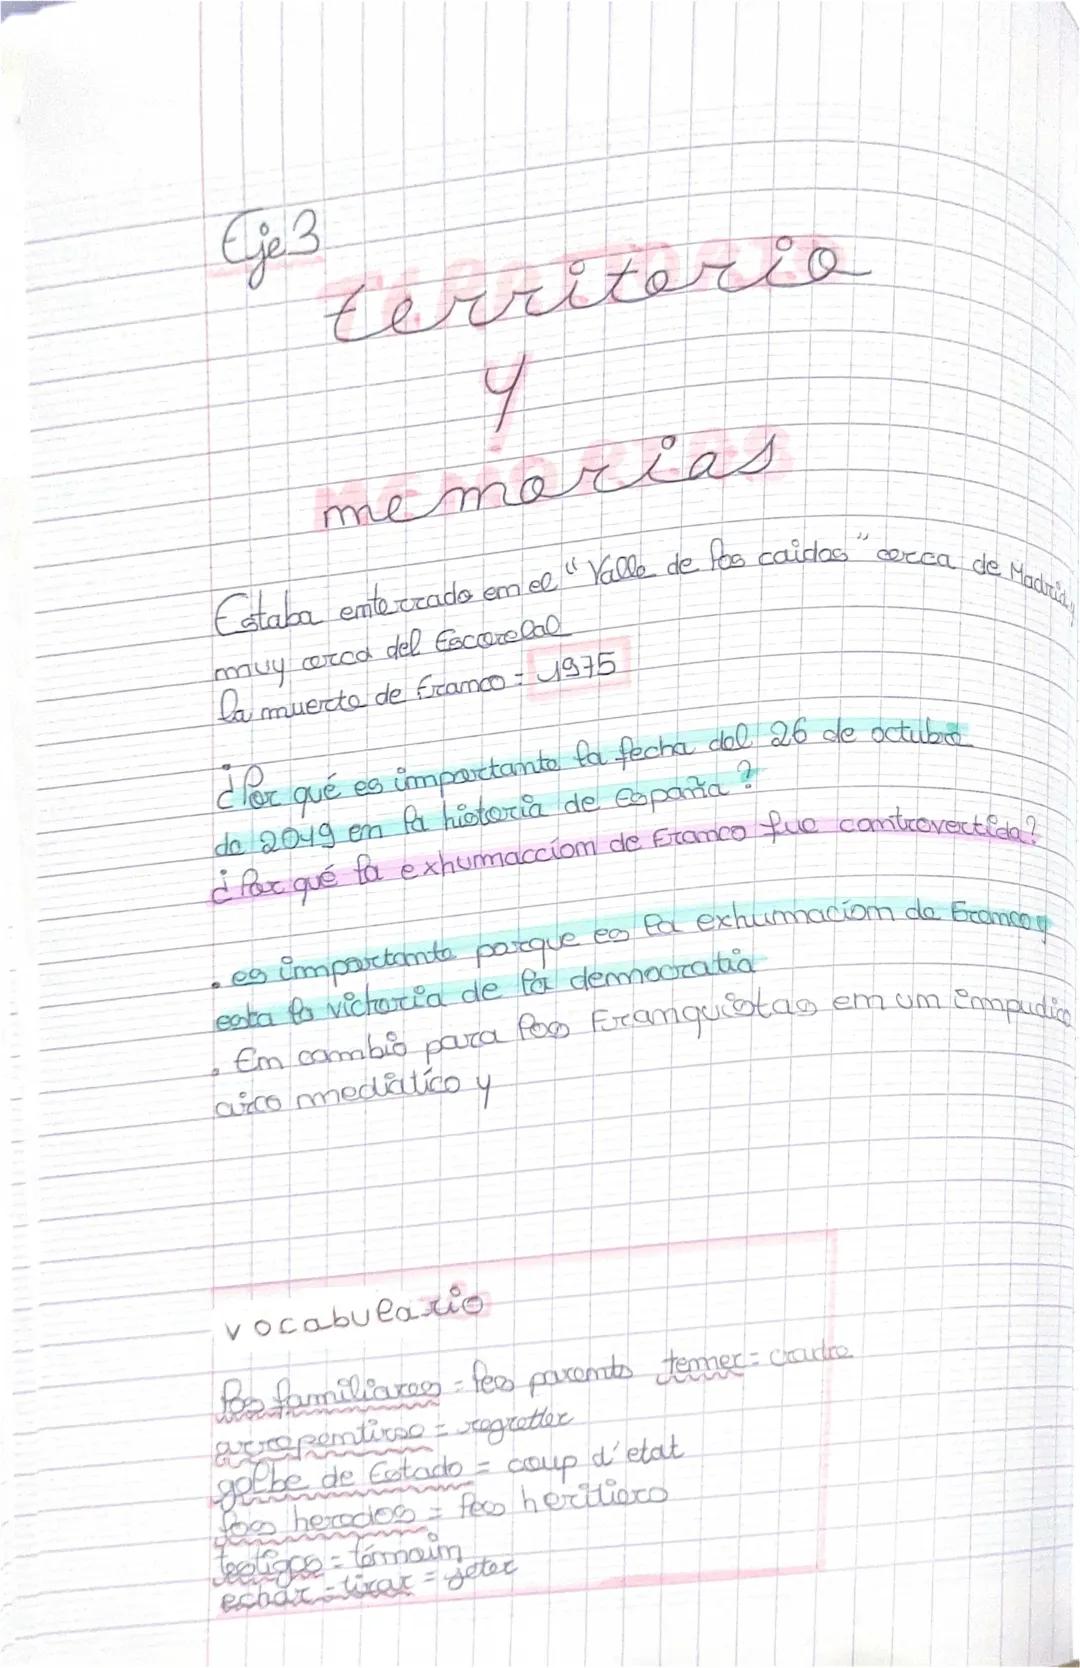 Eje 3
territorio
y
memorias
Estaba enterrado en el "Valle de los caidos" cerca de Madrid, y
muy cerca del Escorelal
la muerte de Franco = 1975
¿Por qué es importante la fecha del 26 de octubre
de 2019 en la historia de España ?
¿Por qué la exhumacciom de Franco fue controvertida?
. es importante porque es la exhumaciom de Franco y
esta la victoria de la democratia
. En cambio para los Franquistas en un impudico
airco mediatico y
vocabulario
los familiares = les parents temer = craidre
arrepentirse = regretter
golbe de Estado = coup d'etat
los herodos = les heritiers
testigos = témoin
echar = tirar = jeter